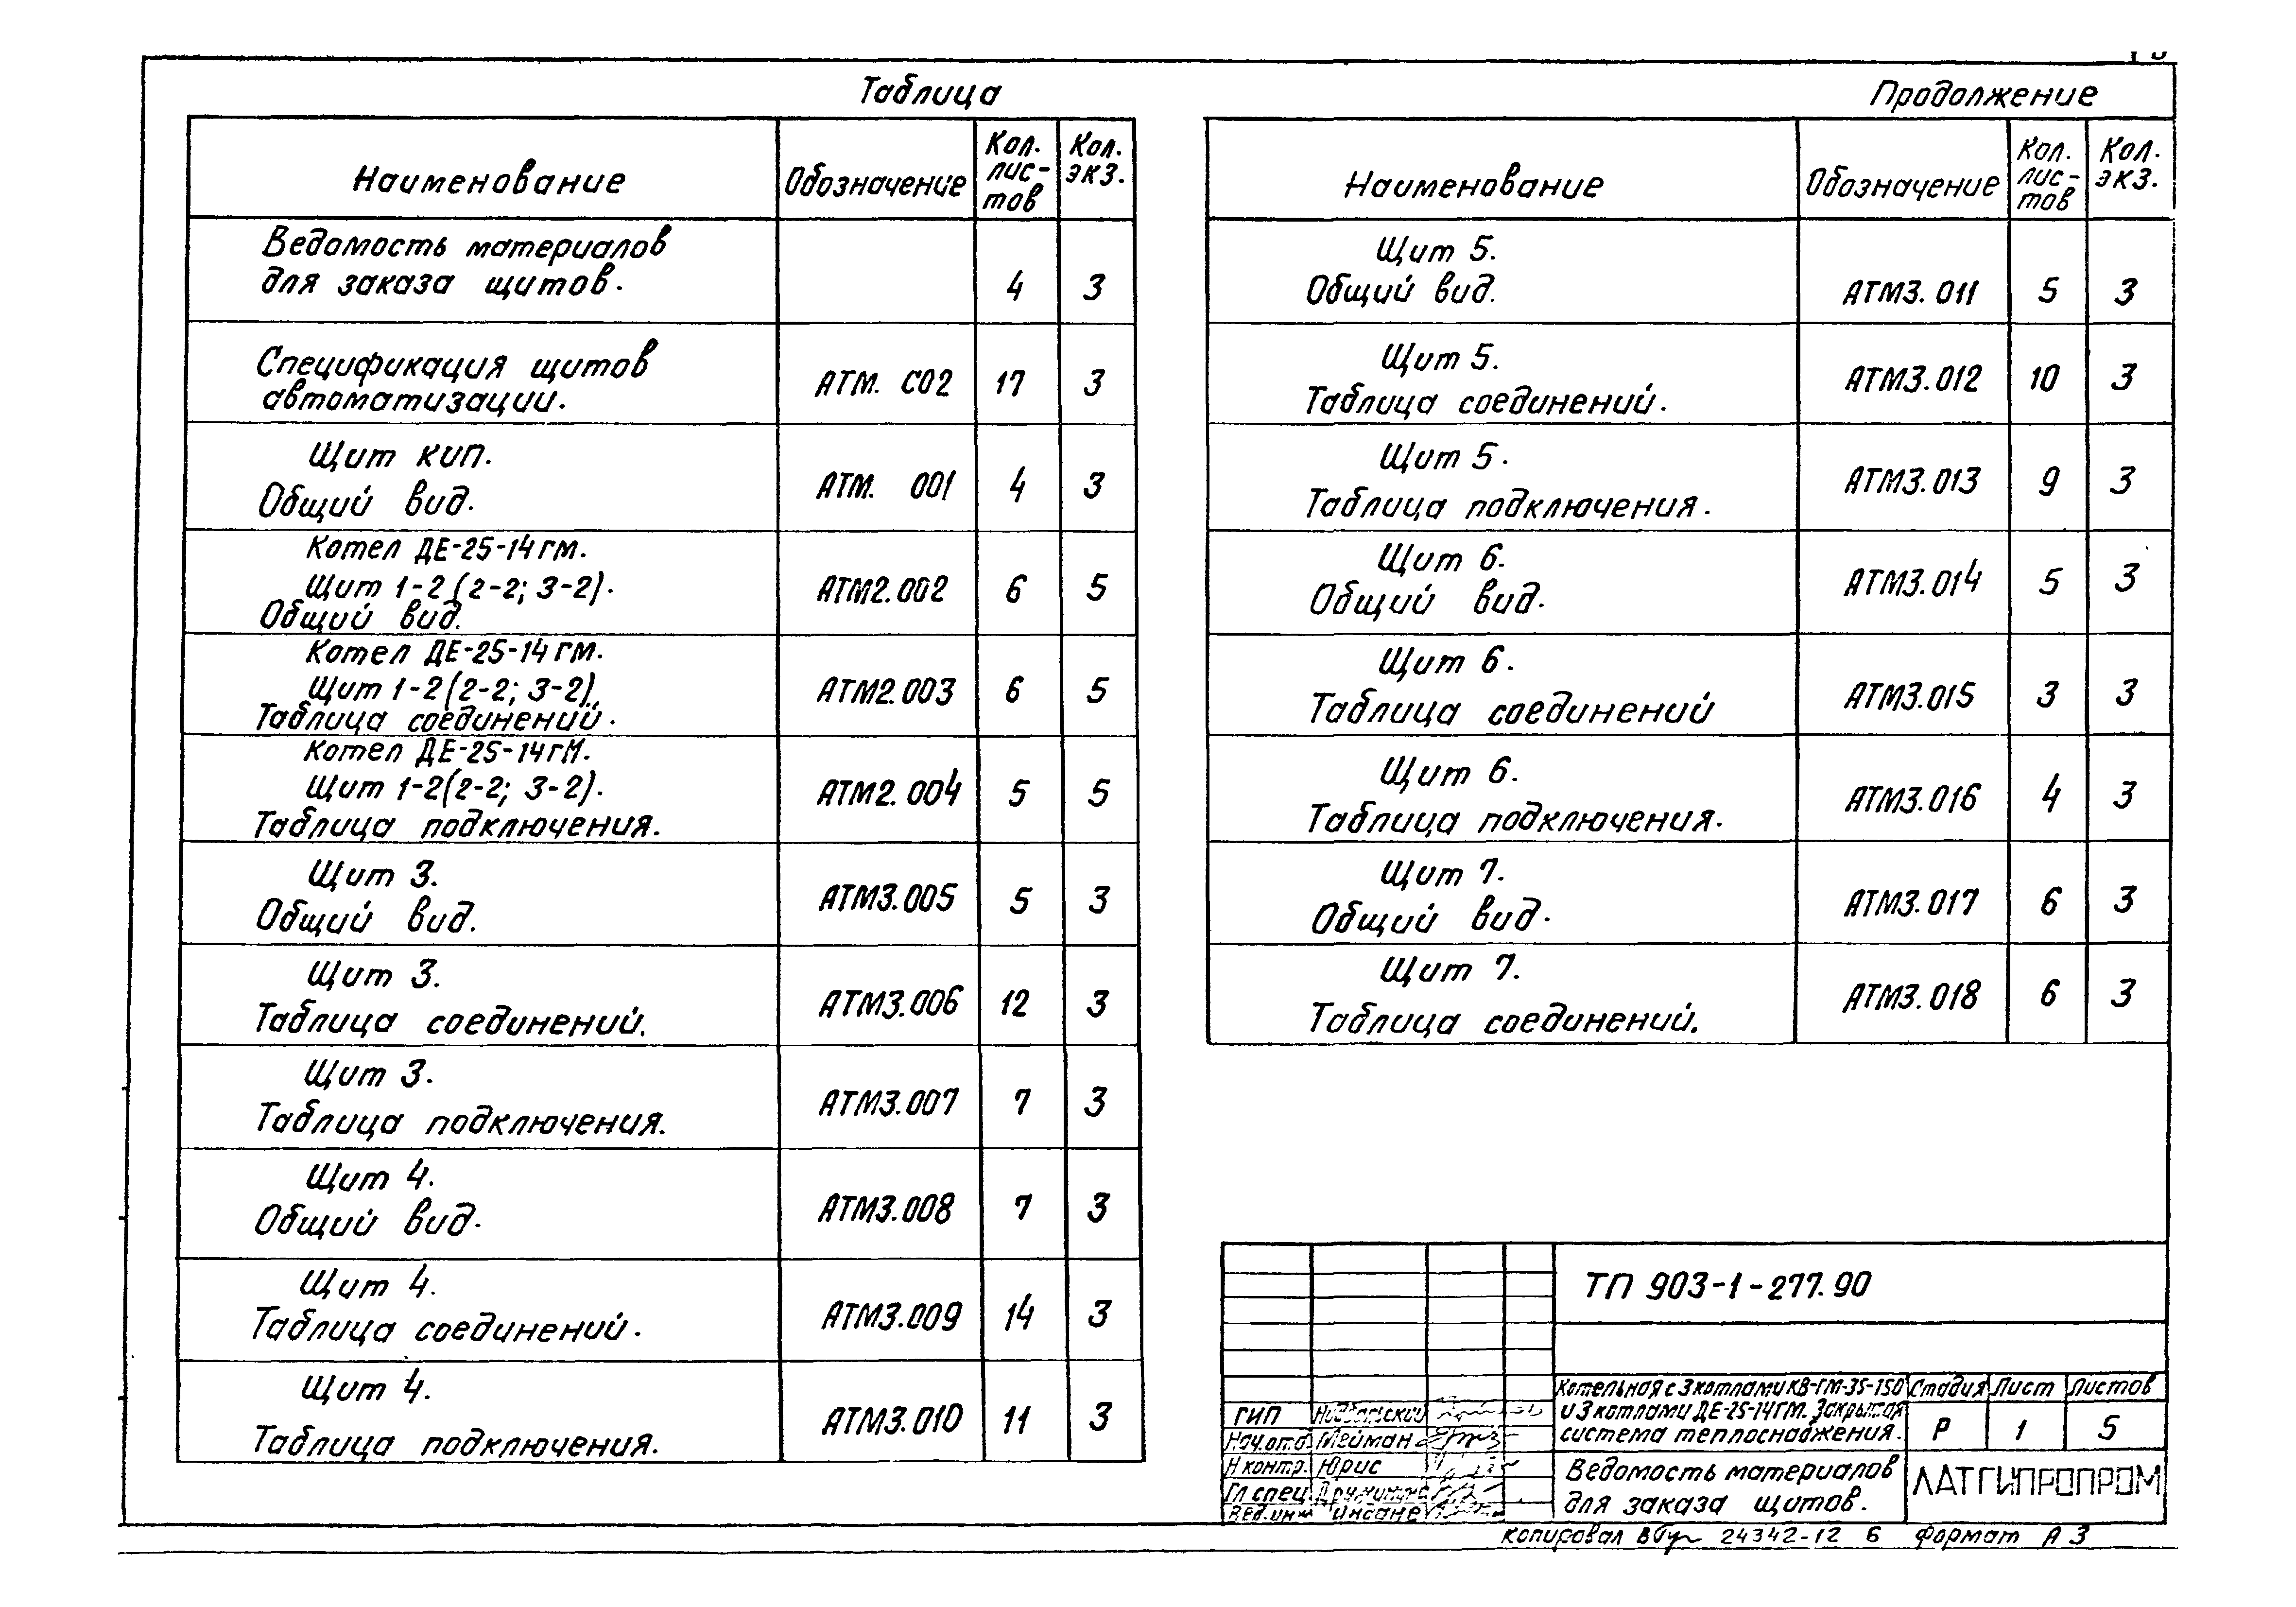 Таблица
Наименование Обозначение Кол. лис- тов Кол. экз.
Ведомость материалов
для заказа щитов. 4 3
Спецификация щитов
автоматизации. АТМ. С02 17 3
Щит КИП.
Общий вид. АТМ. 001 4 3
Котел ДЕ-25-14ГМ.
Щит 1-2 (2-2; 3-2).
Общий вид. АТМ2.002 6 5
Котел ДЕ-25-14ГМ.
Щит 1-2 (2-2; 3-2).
Таблица соединений. АТМ2.003 6 5
Котел ДЕ-25-14ГМ.
Щит 1-2 (2-2; 3-2).
Таблица подключения. АТМ2.004 5 5
Щит 3.
Общий вид. АТМ3.005 5 3
Щит 3.
Таблица соединений. АТМ3.006 12 3
Щит 3.
Таблица подключения. АТМ3.007 7 3
Щит 4.
Общий вид. АТМ3.008 7 3
Щит 4.
Таблица соединений. АТМ3.009 14 3
Щит 4.
Таблица подключения. АТМ3.010 11 3
Продолжение
Наименование Обозначение Кол. лис- тов Кол. экз.
Щит 5.
Общий вид. АТМ3.011 5 3
Щит 5.
Таблица соединений. АТМ3.012 10 3
Щит 5.
Таблица подключения. АТМ3.013 9 3
Щит 6.
Общий вид. АТМ3.014 5 3
Щит 6.
Таблица соединений АТМ3.015 3 3
Щит 6.
Таблица подключения. АТМ3.016 4 3
Щит 7.
Общий вид. АТМ3.017 6 3
Щит 7.
Таблица соединений. АТМ3.018 6 3
ТП 903-1-277.90
Котельная с 3 котлами КВ-ГМ-35-150
и 3 котлами ДЕ-25-14ГМ. Закрытая
система теплоснабжения.
Стадия Лист Листов
Р 1 5
ГИП
Нач.отд Мейман
Н контр. Юрис
Гл спец
Вед.инж
Ведомость материалов
для заказа щитов.
ЛАТГИПРОПРОМ
копировал 24342-12 6 формат А3